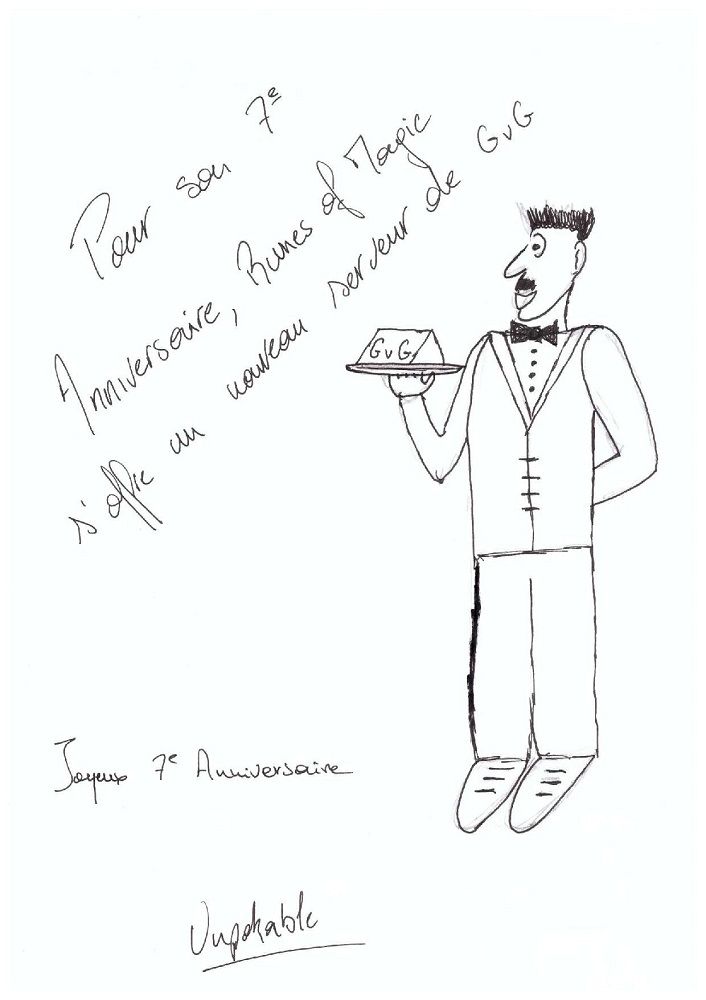 Pour son 7e
Anniversaire, Runes of Magic
s'offre un nouveau serveur de GvG
GvG
Joyeux 7e Anniversaire